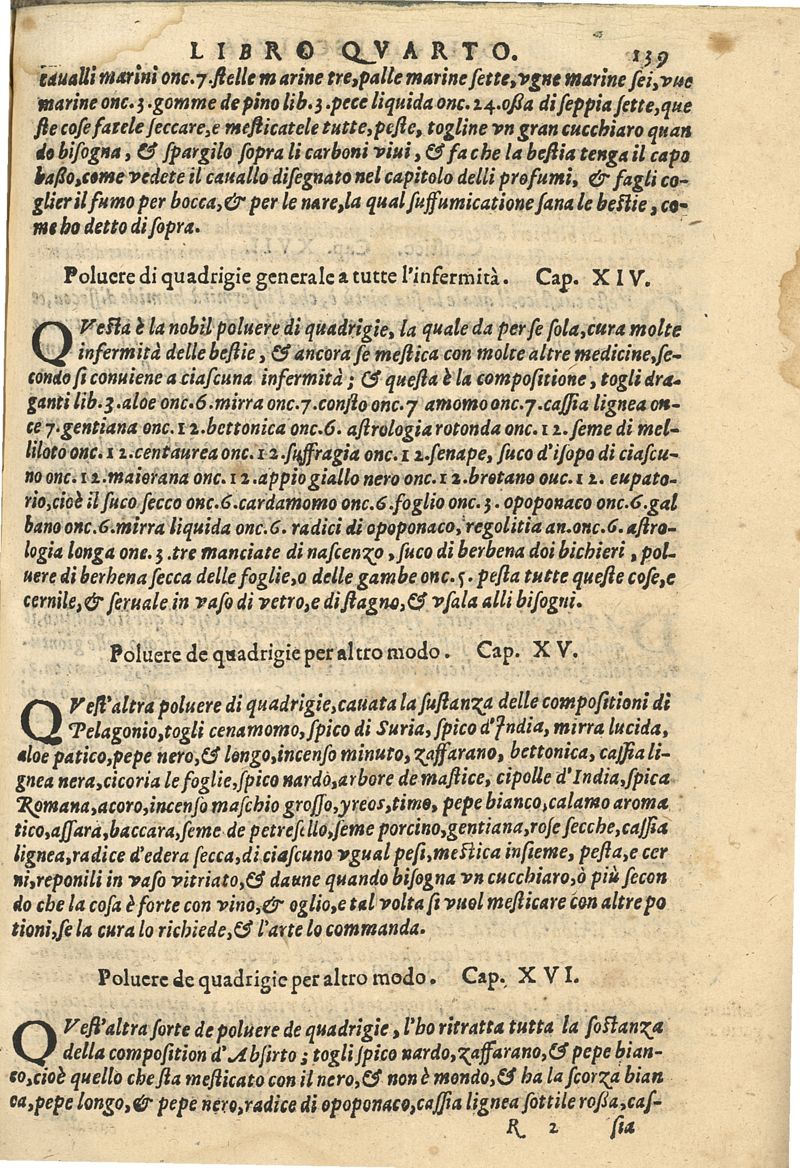 LIBRO QVARTO. 139
caualli marini onc.7.ſtelle marine tre, palle marine ſette, vgne marine ſei, vue
marine onc.3.gomme de pino lib.3.pece liquida onc.24.oßa di ſeppia ſette, que
ſte coſe fatele ſeccare, e meſticatele tutte, peſte, togline vn gran cucchiaro quan
do biſogna, & ſpargilo ſopra li carboni viui, & fa che la beſtia tenga il capo
baßo, come vedete il cauallo diſegnato nel capitolo delli profumi, & fagli co-
glier il fumo per bocca, & per le nare, la qual ſuffumicatione ſana le beſtie, co-
me ho detto di ſopra.
Poluere di quadrigie generale a tutte l'infermità. Cap. XIV.
QVeſta è la nobil poluere di quadrigie, la quale da per ſe ſola, cura molte
infermità delle beſtie, & ancora ſe meſtica con molte altre medicine, ſe-
condo ſi conuiene a ciaſcuna infermità; & queſta è la compoſitione, togli dra-
ganti lib.3.aloe onc.6.mirra onc.7.conſto onc.7 amomo onc.7.caſſia lignea on-
ce 7.gentiana onc.12.bettonica onc.6. aſtrologia rotonda onc.12.ſeme di mel-
liloto onc.12.centaurea onc.12.ſuffragia onc.12.ſenape, ſuco d'iſopo di ciaſcu-
no onc.12.maiorana onc.12.appio giallo nero onc.12.brotano ouc.12. eupato-
rio, cioè il ſuco ſecco onc.6.cardamomo onc.6.foglio onc.3. opoponaco onc.6.gal
bano onc.6.mirra liquida onc.6. radici di opoponaco, regolitia an.onc.6. aſtro-
logia longa onc.3.tre manciate di naſcenzo, ſuco di berbena doi bichieri, pol-
uere di berhena ſecca delle foglie, o delle gambe onc.5. peſta tutte queſte coſe, e
cernile, & ſeruale in vaſo di vetro, e di ſtagno, & vſala alli biſogni.
Poluere de quadrigie per altro modo. Cap. XV.
QVeſt'altra poluere di quadrigie, cauata la ſuſtanza delle compoſitioni di
Pelagonio, togli cenamomo, ſpico di Suria, ſpico d'India, mirra lucida,
aloe patico, pepe nero, & longo, incenſo minuto, zaffarano, bettonica, caſſia li-
gnea nera, cicoria le foglie, ſpico nardo, arbore de maſtice, cipolle d'India, ſpica
Romana, acoro, incenſo maſchio groſſo, yreos, timo, pepe bianco, calamo aroma
tico, aſſara, baccara, ſeme de petreſello, ſeme porcino, gentiana, roſe ſecche, caſſia
lignea, radice d'edera ſecca, di ciaſcuno vgual peſi, meſtica inſieme, peſta, e cer
ni, reponili in vaſo vitriato, & danne quando biſogna vn cucchiaro, ò più ſecon
do che la coſa è forte con vino, & oglio, e tal volta ſi vuol meſticare con altre po
tioni, ſe la cura lo richiede, & l'arte lo commanda.
Poluere de quadrigie per altro modo. Cap. XVI.
QVeſt'altra ſorte de poluere de quadrigie, l'ho ritratta tutta la ſoſtanza
della compoſition d'Abſirto; togli ſpico nardo, zaffarano, & pepe bian-
co, cioè quello che ſta meſticato con il nero, & non è mondo, & ha la ſcorza bian
ca, pepe longo, & pepe nero, radice di opoponaco, caſſia lignea ſottile roßa, caſ-
R 2 ſia